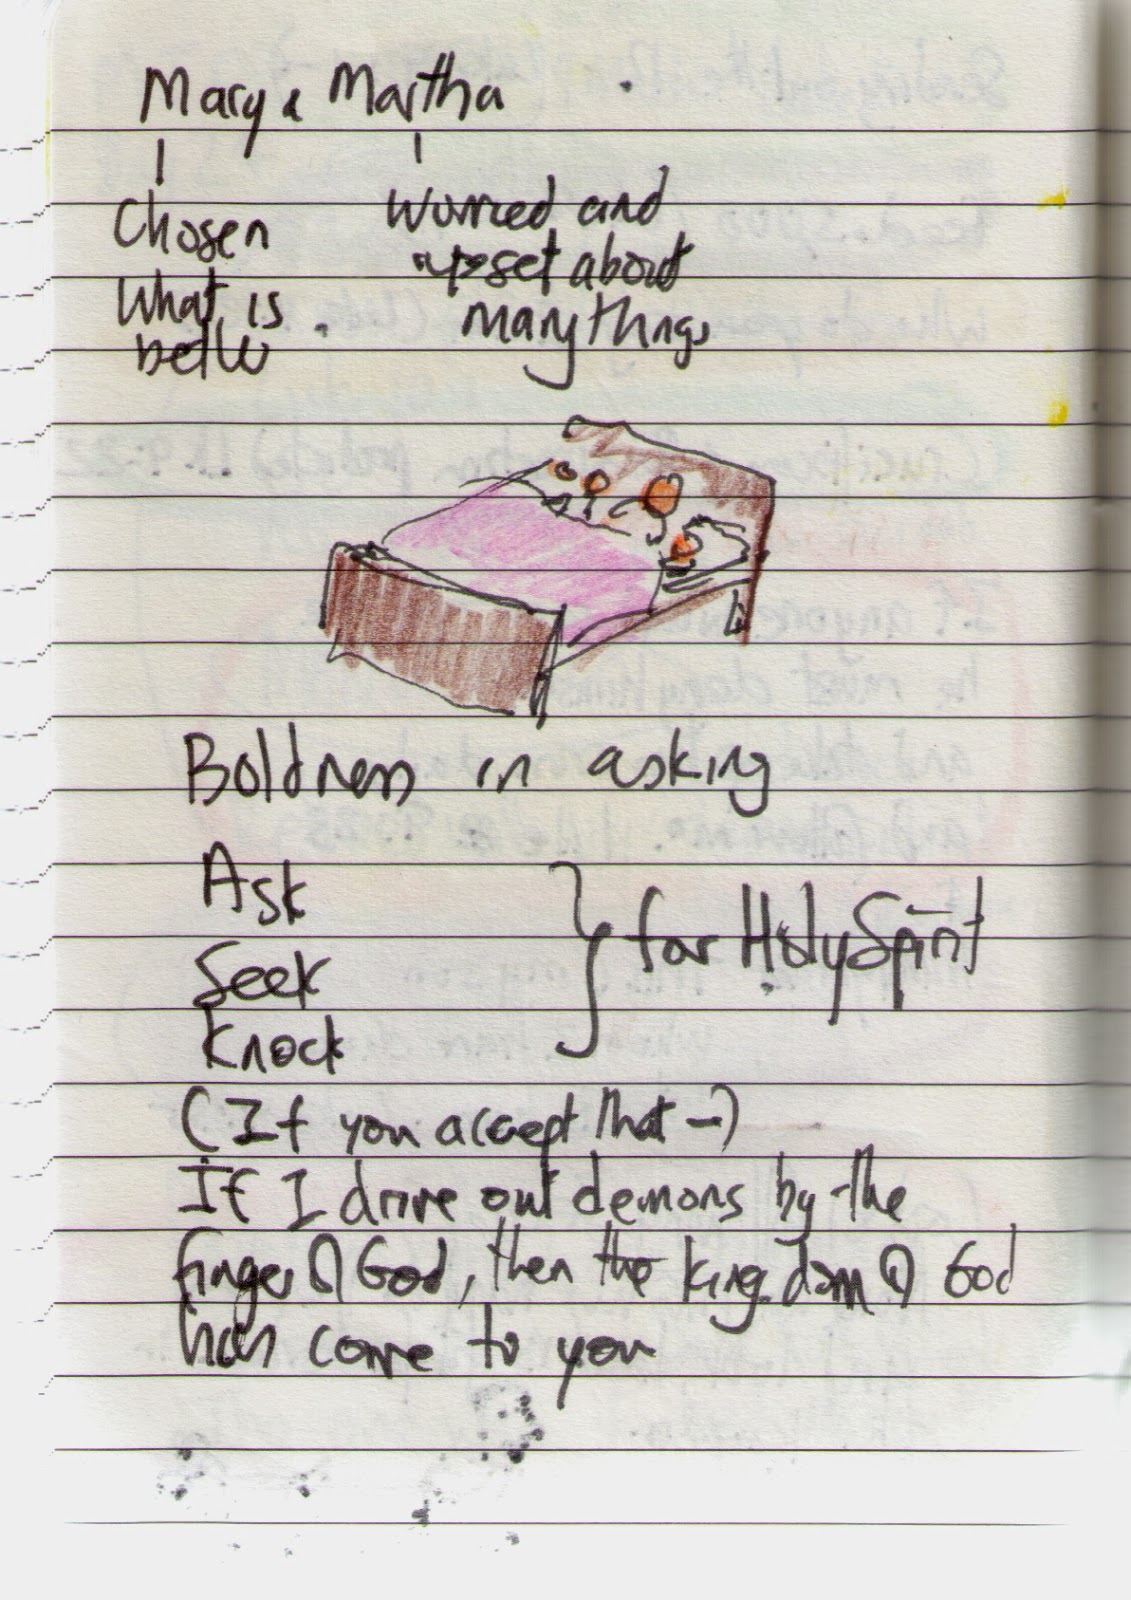 Mary & Martha
Chosen
What is
better
worried and
upset about
many things
Boldness in asking
Ask
Seek
Knock
for Holy Spirit
(If you accept that —)
If I drive out demons by the
finger of God, then the kingdom of God
has come to you